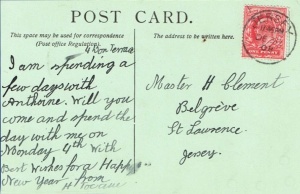 POST CARD.
This space may be used for correspondence
(Post office Regulation).
The address to be written here.
4 Don Terrace
I am spending a
few days with
Anthoine. Will you
come and spend the
day with me on
Monday 4th With
Best Wishes for a Happy
New Year from
H
Master H Clement
Belgrève
St Lawrence
Jersey.
JERSEY